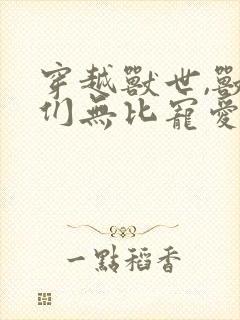 穿越獸世,獸
们無比寵愛
一點稻香